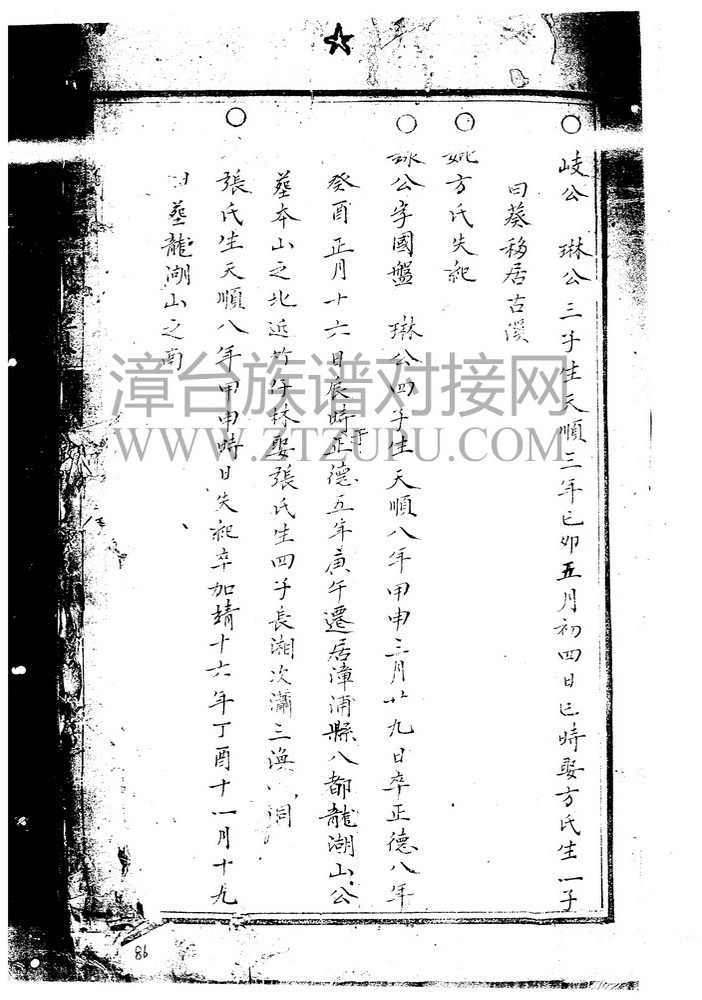 ○岐公 琳公三子生天順三年己卯五月初四日巳時娶方氏生一子
曰葵移居古溪
○妣方氏失紀
○公字國盤 琳公四子生天順八年甲申三月廿九日卒正德八年
癸酉正月十六日辰時正德五年庚午遷居漳浦縣八都龍湖山公
墓本山之北近竹仔林娶張氏生四子長湘次瀟三渙洞
○張氏生天順八年甲申時日失紀卒加靖十六年丁酉十一月十九
日墓龍湖山之南
漳台族谱对接网
WWW.ZTZUPU.COM
98